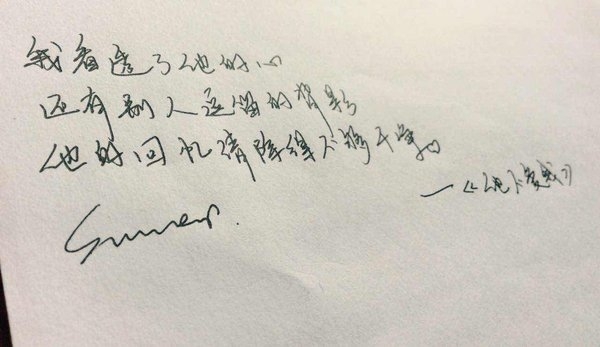 我看透了他的心
还有别人逗留的背影
他的回忆清除得不够干净。
—《他不爱我》
Summer.